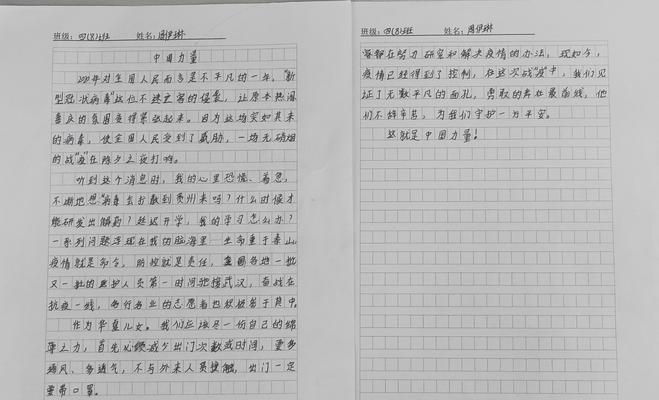 班级：四(8)班 姓名：周伊琳
中国力量
2020年对全国人民而言是不平凡的一年，“新
型冠状病毒”这位不速之客的侵袭，让原本热闹
的氛围变得紧张起来。因为这场突如其来
的病毒，使全国人民受到了威胁，一场无硝烟
的战“疫”在除夕之夜打响。
听到这个消息时，我的心里恐慌、着急，
不断地想“病毒会扩散到贵州来吗？什么时候才
能研发出解药？延迟开学，我的学习怎么办？
一系列问题浮现在我的脑海里
疫情就是命令，防控就是责任，全国各地一批
又一批的医护人员第一时间驰援武汉，奋战在
抗疫一线，各行各业的志愿者也积极参于其中。
作为华夏儿女。我们应该尽一份自己的绵
薄之力，首先必须减少出门次数或时间，要多
通风、多透气，不与外来人员接触，出门一定
要带口罩。
班级：四(8)班 姓名：周伊琳
都在努力研究和解决疫情的办法，现如今，
疫情已经得到了控制，在这次战“疫”中，我们见
证了无数平凡的面孔，勇敢的奔在最前线，他
们不辞辛苦，为我们守护一方平安。
这就是中国力量！